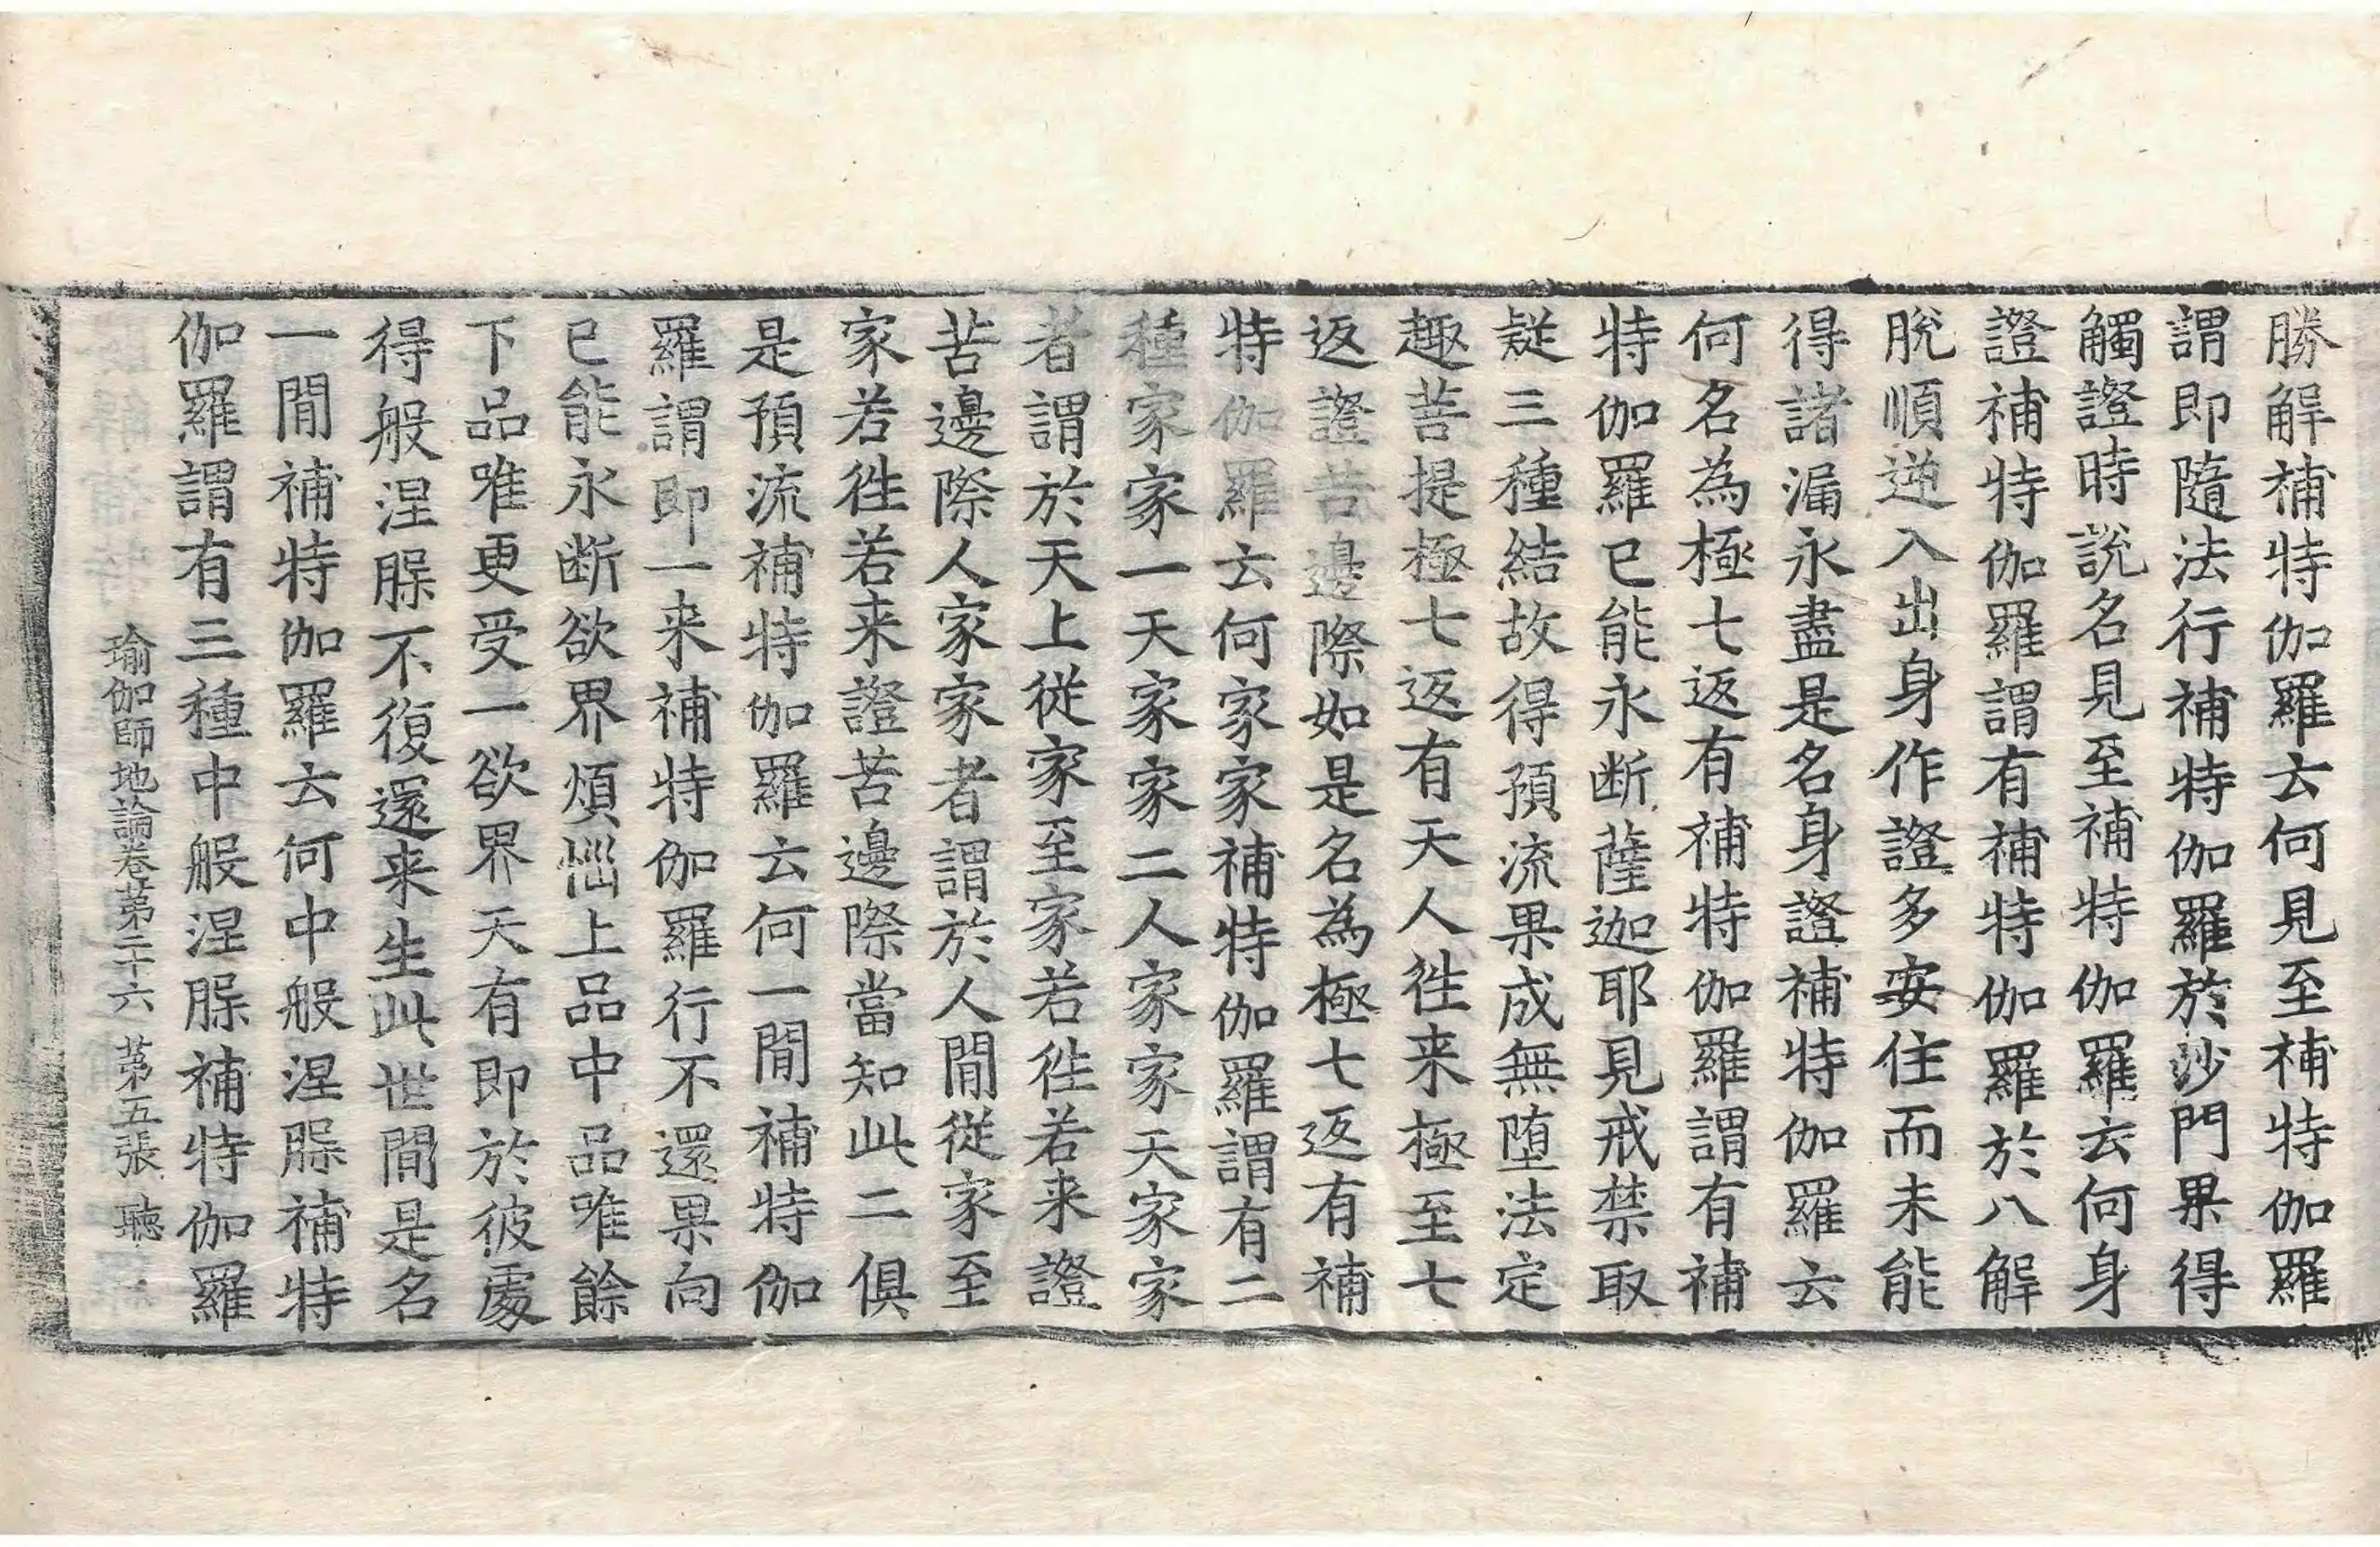 勝解補特伽羅云何見至補特伽羅
謂即隨法行補特伽羅於沙門果得
觸證時說名見至補特伽羅云何身
證補特伽羅謂有補特伽羅於八解
脫順逆入出身作證多安住而未能
得諸漏永盡是名身證補特伽羅云
何名為極七返有補特伽羅謂有補
特伽羅已能永断薩迦耶見戒禁取
疑三種結故得預流果成無堕法定
趣菩提極七返有天人徃来極至七
返證苦邊際如是名為極七返有補
特伽羅云何家家補特伽羅謂有二
種家家一天家家二人家家天家家
者謂於天上從家至家若徃若来證
苦邊際人家家者謂於人間從家至
家若徃若来證苦邊際當知此二俱
是預流補特伽羅云何一間補特伽
羅謂即一来補特伽羅行不還果向
已能永断欲界煩惱上品中品唯餘
下品唯更受一欲界天有即於彼處
得般涅槃不復還来生此世間是名
一間補特伽羅云何中般涅槃補特
伽羅謂有三種中般涅槃補特伽羅
瑜伽師地論卷苐二十六 苐五張 聽